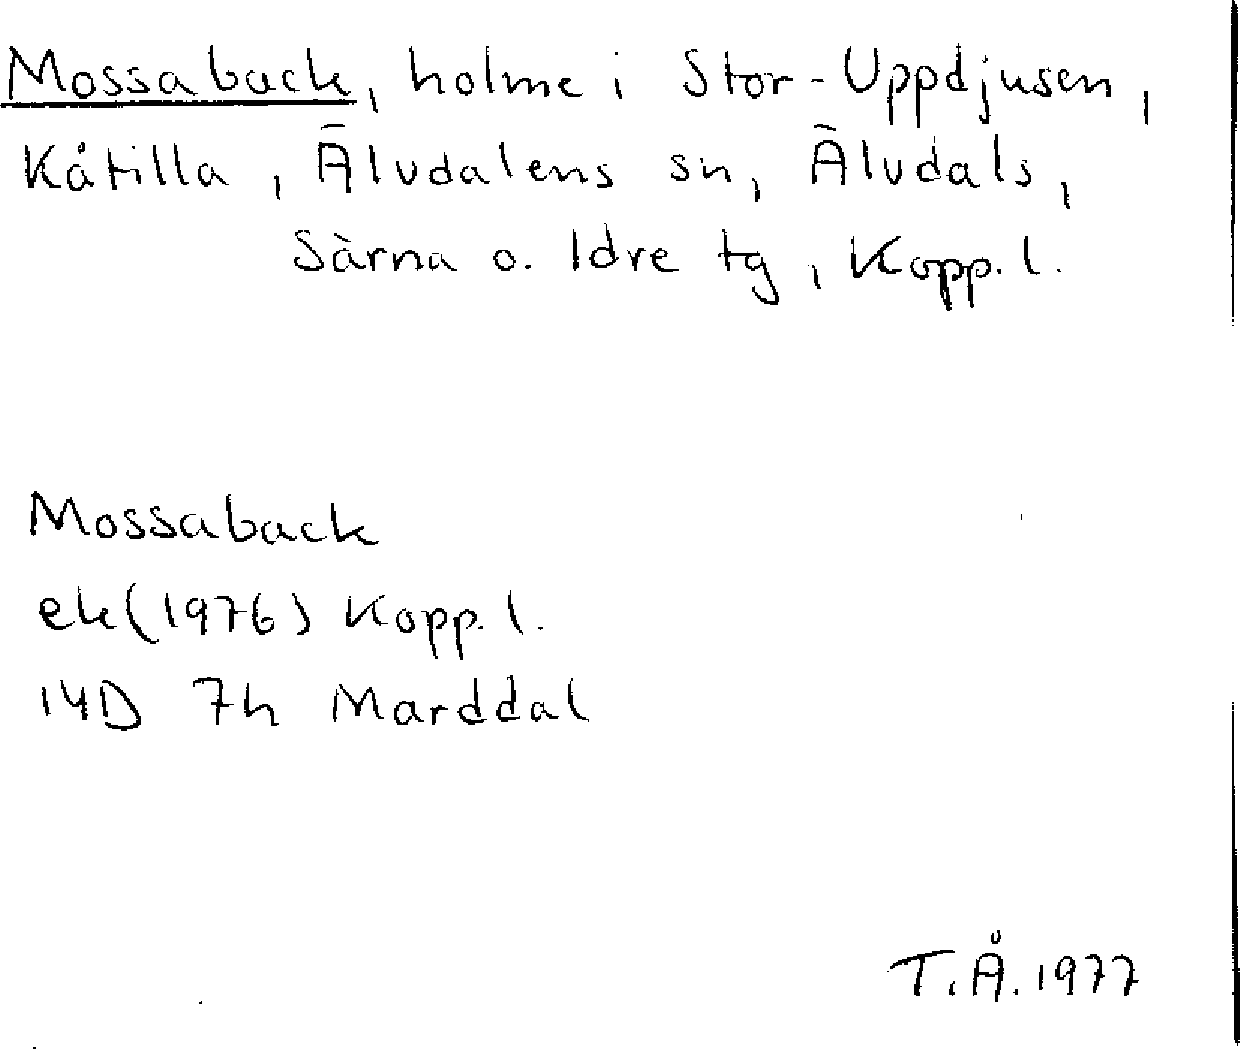 Mossaback, holme i Stor-Uppdjusen,
Kåtilla, Älvdalens sn, Älvdals,
Särna o. Idre tg, Kopp. l.
Mossaback
ek (1976) Kopp. l.
14D 7h Marddal
T.Å. 1977